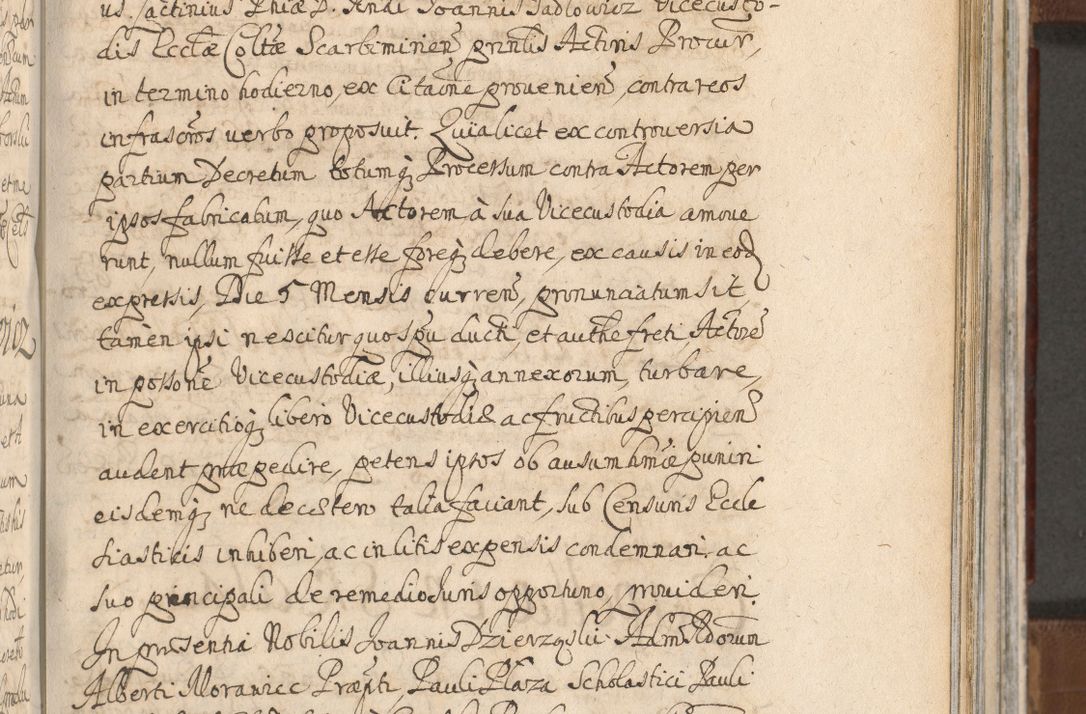 us. Jactinius Phiæ D. Andi Joannis Jadlowicz Vicecusto-
dis Ecclæ Coltæ Scarbimirien̄ prntis Actoris Procur,
in termino hodierno, ex Citaōne provenien̄, contra reos
infrascr̄os verbo proposuit. Quia licet ex controversia
partium Decretum totumq3 Processum contra Actorem per
ipsos fabricatum, quo Actorem à sua Vicecustodia amove
runt, nullum fuisse et esse foreq3 debere, ex causis in eod
expressis, Die 5 Mensis curren̄, pronunciatum sit,
tamen ipsi nescitur quo spu ducti, et autħe freti Actore
in posson̄e Vicecustodiæ, illiusq3 annexorum, turbare,
in exercitioq3 libero Vicecustodiæ ac fructibus percipien̄
audent præpedire, petens ipsos ob ausum hmōi puniri
eisdemq3 ne decætero talia faciant, sub Censuris Eccle
siasticis inhiberi, ac in litis expensis condemnari, ac
suo principali de remedio Juris opportuno, provideri.
In præsentia Nobilis Joannis Dzierzgski Adm Rdorum
Alberti Morawicc Præpti, Pauli Plaza Scholastici Pauli